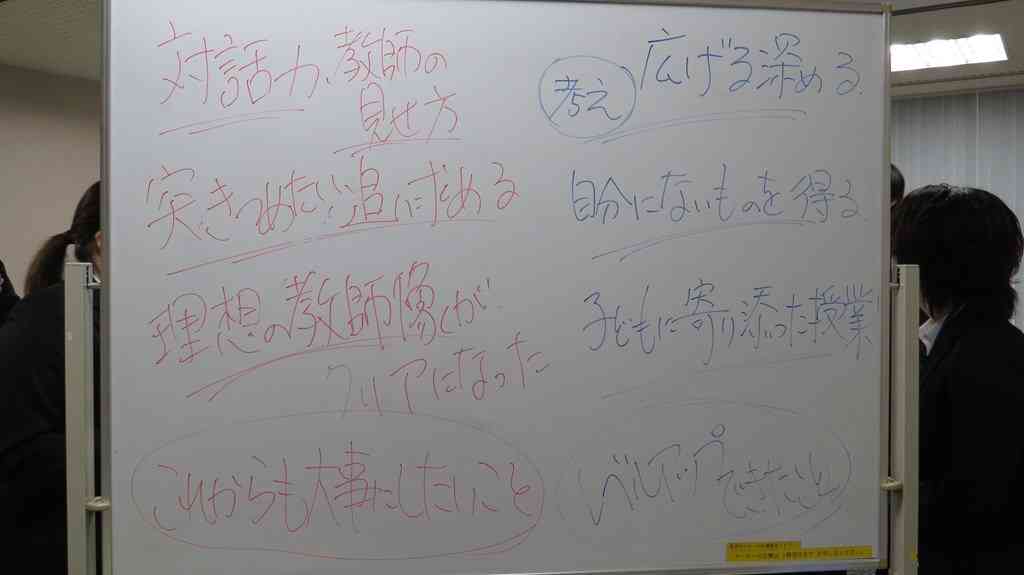 対話力、教師の
見せ方
突きつめたい、追い求める
理想の教師像が
クリアになった
これからも大事にしたいこと
考え 広げる深める
自分にないものを得る
子どもに寄り添った授業
レベルアップできたこと